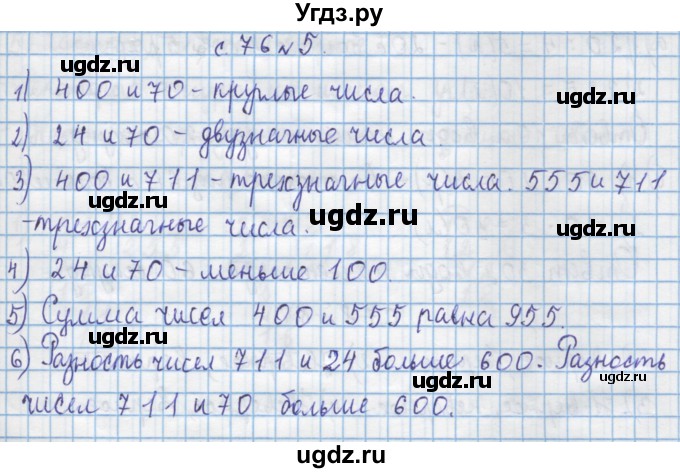 Угдз.ру
с. 76 №5.
ugdz.ru ugdz.ru
1) 400 и 70 - круглые числа.
ugdz.ru ugdz.ru
2) 24 и 70 - двузначные числа.
3) 400 и 711 - трехзначные числа. 555 и 711
ugdz.ru ugdz.ru
- трехзначные числа.
ugdz.ru
4) 24 и 70 - меньше 100.
ugdz.ru ugdz.ru
5) Сумма чисел 400 и 555 равна 955.
ugdz.ru
6) Разность чисел 711 и 24 больше 600. Разность
ugdz.ru ugdz.ru
чисел 711 и 70 больше 600.
ugdz.ru